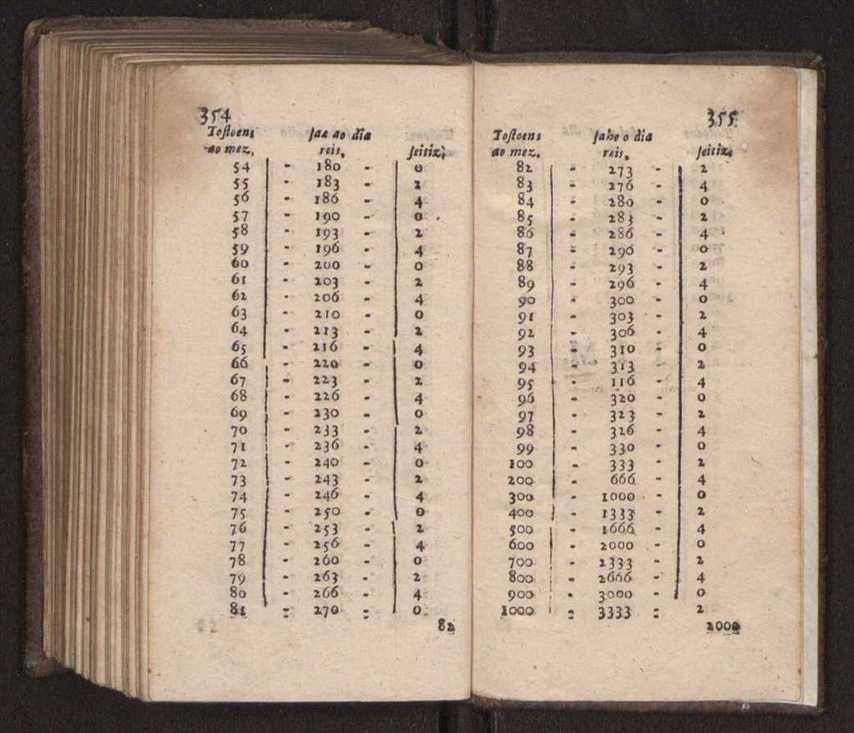 354
Tostoens sae ao dia
ao mez. reis. seitiz.
54 - 180 - 0
55 - 183 - 2
56 - 186 - 4
57 - 190 - 0
58 - 193 - 2
59 - 196 - 4
60 - 200 - 0
61 - 203 - 2
62 - 206 - 4
63 - 210 - 0
64 - 213 - 2
65 - 216 - 4
66 - 220 - 0
67 - 223 - 2
68 - 226 - 4
69 - 230 - 0
70 - 233 - 2
71 - 236 - 4
72 - 240 - 0
73 - 243 - 2
74 - 246 - 4
75 - 250 - 0
76 - 253 - 2
77 - 256 - 4
78 - 260 - 0
79 - 263 - 2
80 - 266 - 4
81 - 270 - 0
82
355
Tostoens sahe o dia
ao mez. reis. seitiz.
82 - 273 - 2
83 - 276 - 4
84 - 280 - 0
85 - 283 - 2
86 - 286 - 4
87 - 290 - 0
88 - 293 - 2
89 - 296 - 4
90 - 300 - 0
91 - 303 - 2
92 - 306 - 4
93 - 310 - 0
94 - 313 - 2
95 - 116 - 4
96 - 320 - 0
97 - 323 - 2
98 - 326 - 4
99 - 330 - 0
100 - 333 - 2
200 - 666 - 4
300 - 1000 - 0
400 - 1333 - 2
500 - 1666 - 4
600 - 2000 - 0
700 - 2333 - 2
800 - 2666 - 4
900 - 3000 - 0
1000 - 3333 - 2
2000